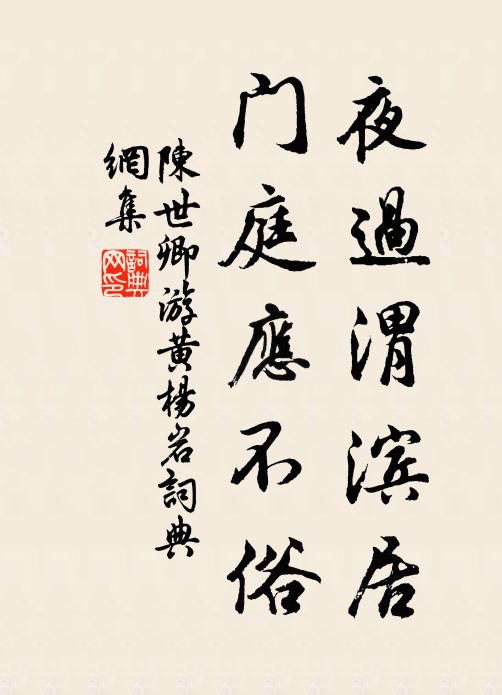 夜過渭滨居
門庭應不俗
陳世卿游黄楊岩詞典
網集
詞典
网印